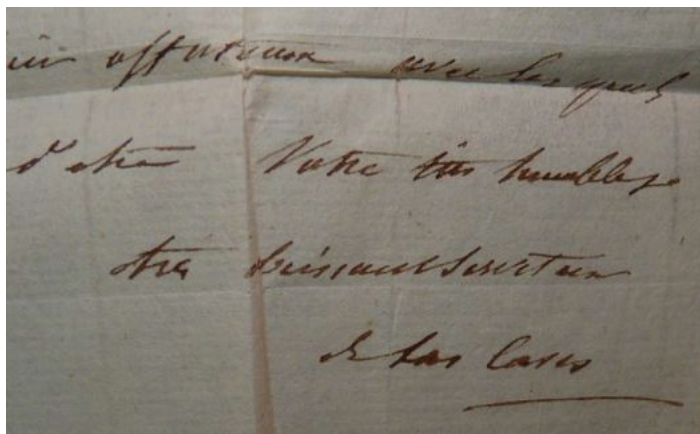 affectueux avec lesquels
d'etre Votre très humble &
très obéissant Serviteur
de Las Cases